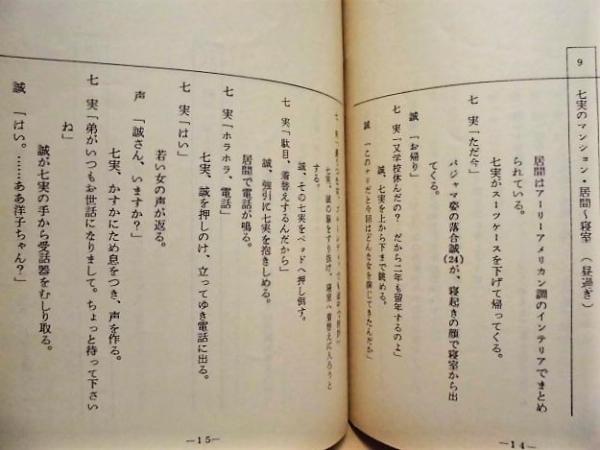 9
七実のマンション・居間~寝室　(昼過ぎ)
居間はアーリーアメリカン調のインテリアでまとめ
られている。
七実がスーツケースを下げて帰ってくる。
七　実「ただ今」
パジャマ姿の落合誠(24)が、寝起きの顔で寝室から出
てくる。
誠　「お帰り」
七　実「又学校休んだの?　だから二年も留年するのよ」
誠、七実を上から下まで眺める。
誠　「このナリだと今回はどんな女を演じてきたんだか」
—14—
七　実「
七実、誠の脇をすり抜け、寝室へ着替えに入ろうと
する。
誠、その七実をベッドへ押し倒す。
七　実「駄目、着替えするんだから」
誠、強引に七実を抱きしめる。
居間で電話が鳴る。
七　実「ホラホラ、電話」
七実、誠を押しのけ、立ってゆき電話に出る。
七　実「はい」
声　「誠さん、いますか?」
若い女の声が返る。
七実、かすかにため息をつき、声を作る。
七　実「弟がいつもお世話になりまして。ちょっと待って下さい
ね」
誠が七実の手から受話器をむしり取る。
誠　「はい。……ああ洋子ちゃん?」
—15—